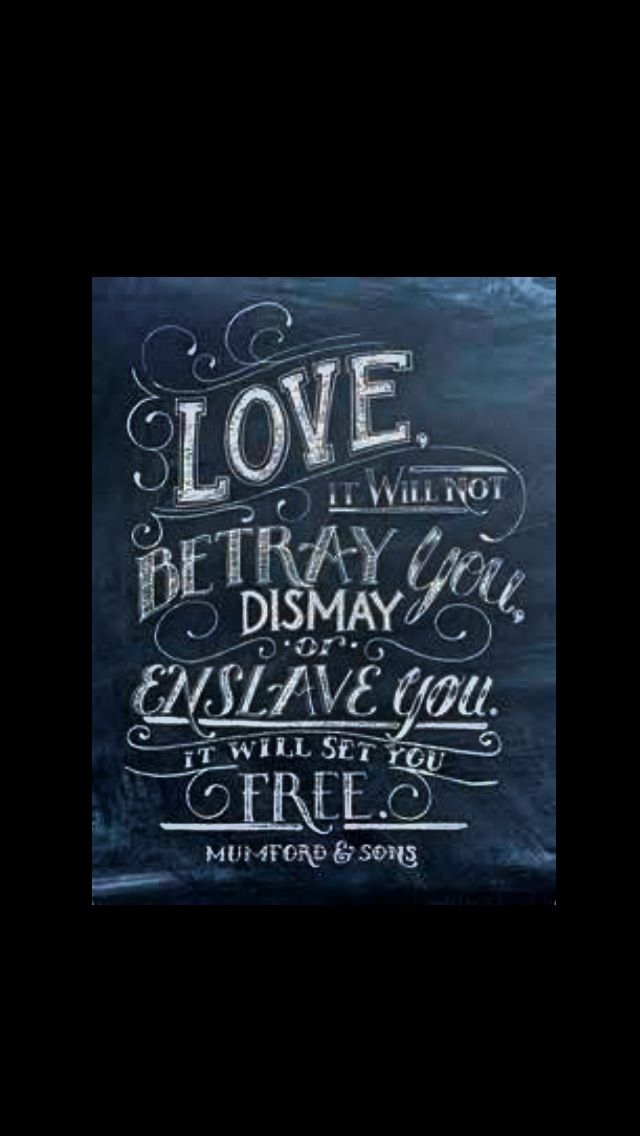 LOVE,
IT WILL NOT
BETRAY you,
DISMAY
·or·
ENSLAVE you.
IT WILL SET YOU
FREE.
MUMFORD & SONS